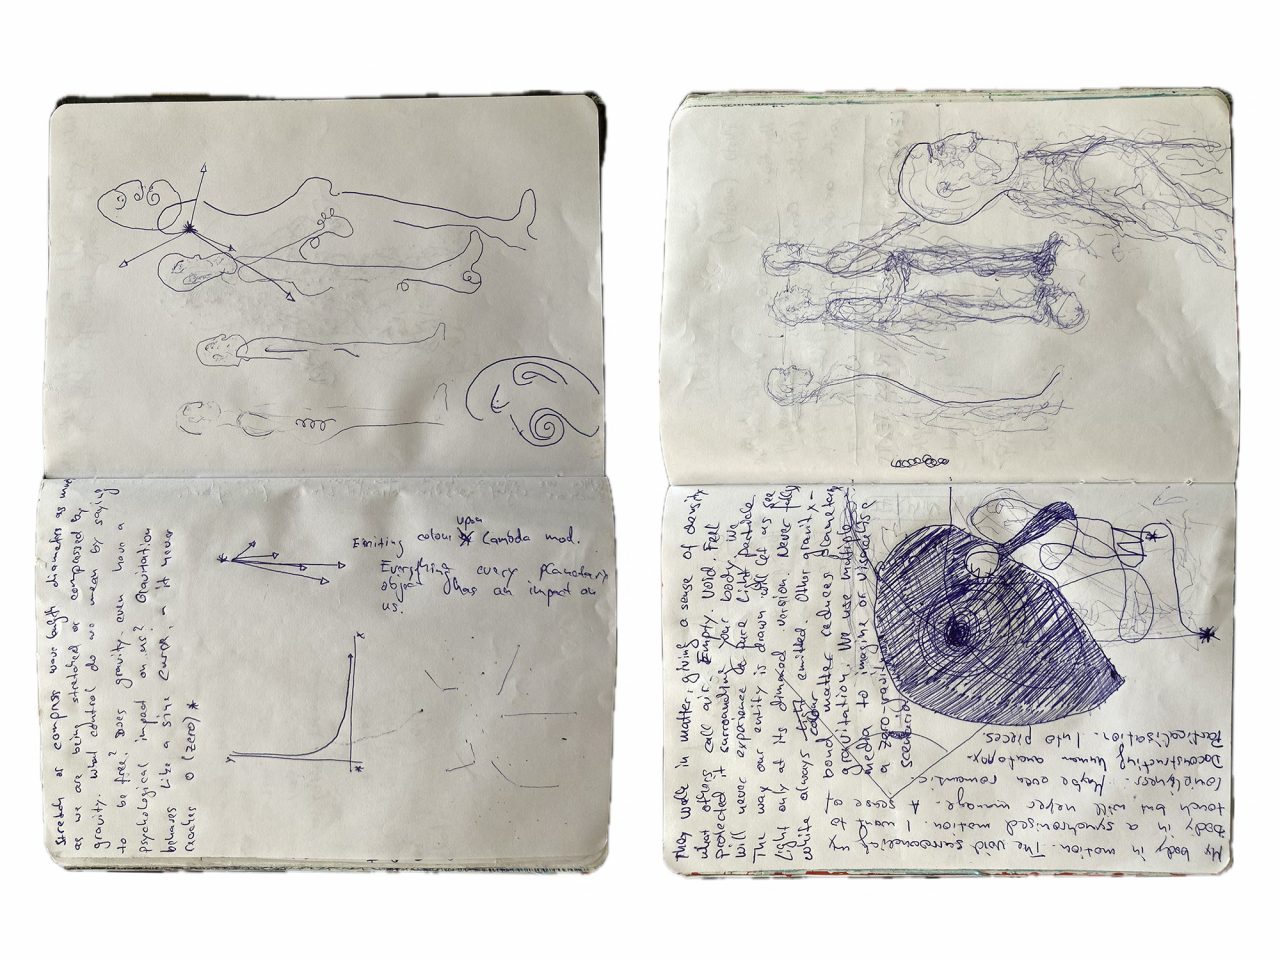 stretch or compress wave length diameters as much
as we are being stretched or compressed by
gravity. What control do we mean by saying
to be free? Does gravity even have a
psychological impact on us? Gravitation
behaves like a sine curve, as it never
reaches 0 (zero) *
Emiting colour upon Lambda mod.
Everything every planetary
object has an impact on
us.
x
y
They walk in matter, giving a sense of density
what others call air. Empty. Void. Fell
protected it surrounding your body. We
will never experience the pure light particle.
The way our entity is drawn will let us see
light only at its dimmed version. Never fully
white always colour emitted. Other gravity-
bond matter reduces planetary
gravitation. We use multiple
media to imagine or visualise
a zero-gravitation
scenario
My body in motion. The void surrounding my
body in a synchronised motion. I want to
touch but will never manage. A sense of
loneliness. Maybe even romantic.
Deconstructing human anatomy.
Particalisation. Into pieces.